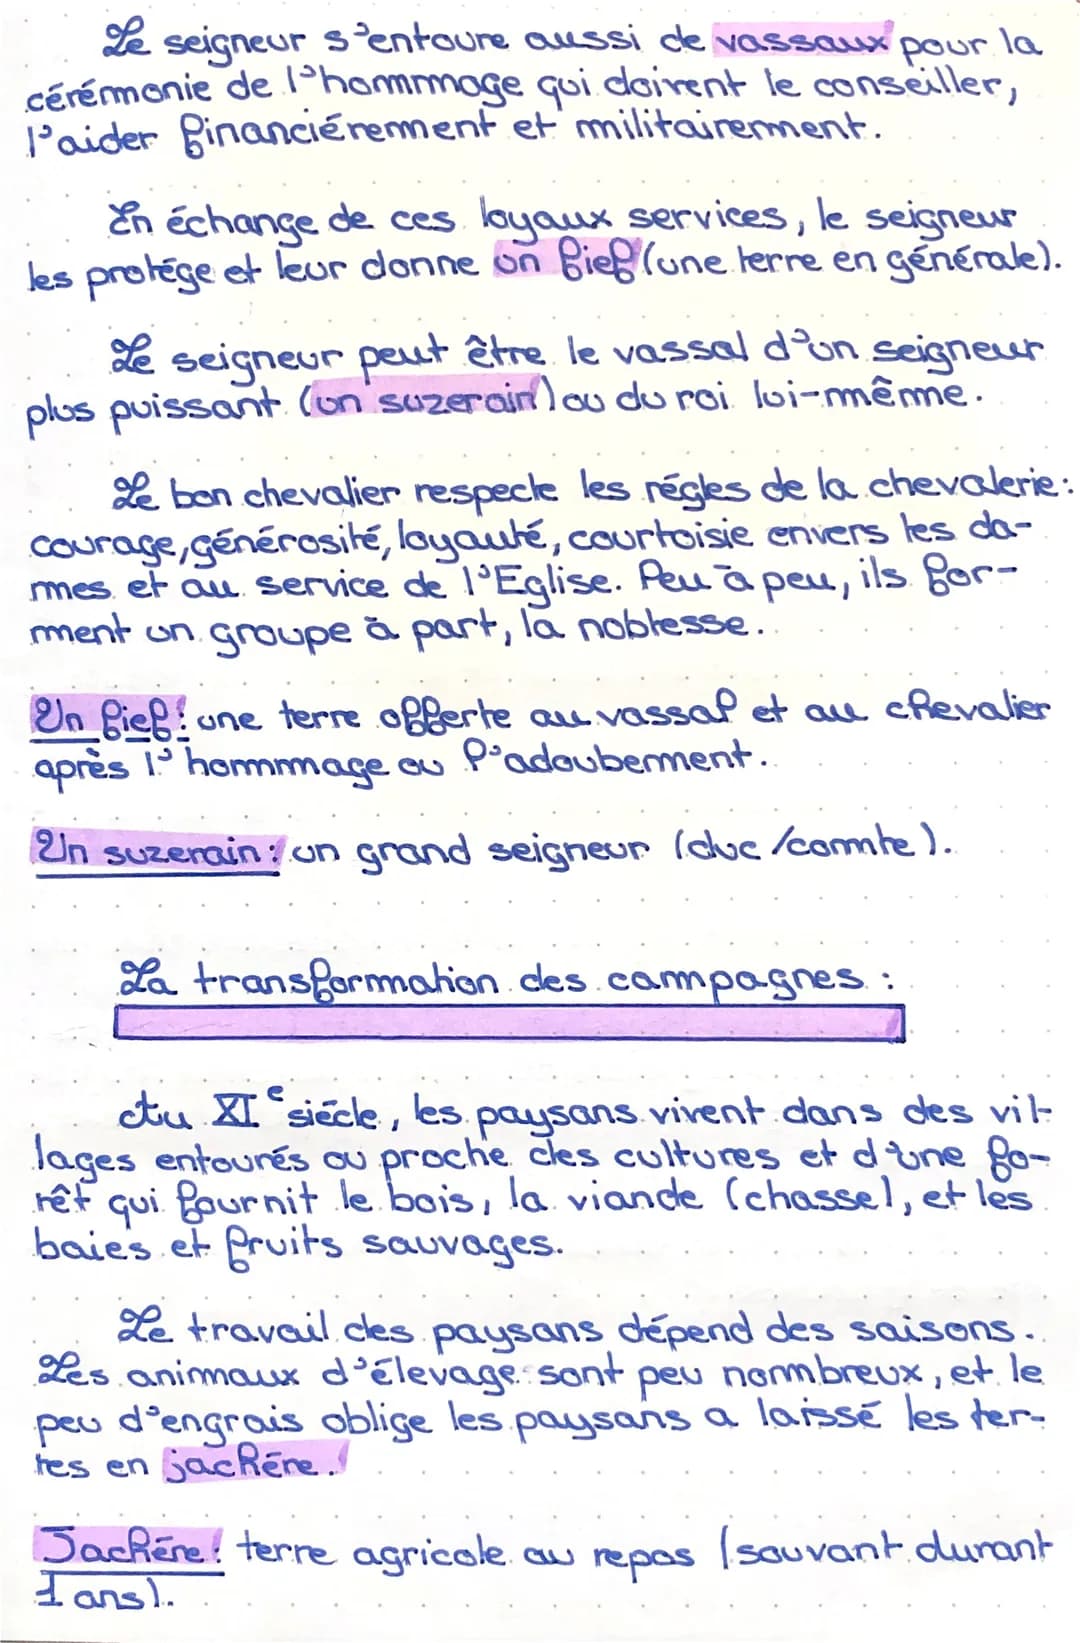 Le seigneur s'entoure aussi de vassaux pour la
cérémonie de l'hommage qui doivent le conseiller,
l'aider financiérement et militairement.
En échange de ces loyaux services, le seigneur
les protége et leur donne un fief (une terre en générale).
Le seigneur peut être le vassal d'un seigneur
plus puissant (un suzerain) ou du roi lui-même.
Le bon chevalier respecte les régles de la chevalerie:
courage, générosité, loyauté, courtoisie envers les da-
mes et au service de l'Eglise. Peu à peu, ils for-
ment un groupe à part, la noblesse.
Un fief: une terre offerte au vassal et au chevalier
après l'hommage ou l'adoubement.
Un suzerain: un grand seigneur (duc/comte).
La transformation des campagnes :
Au XIe siécle, les paysans vivent dans des vil-
lages entourés ou proche des cultures et d'une fo-
rêt qui fournit le bois, la viande (chasse), et les
baies et fruits sauvages.
Le travail des paysans dépend des saisons.
Les animaux d'élevage sont peu nombreux, et le
peu d'engrais oblige les paysans a laissé les ter-
res en jachére.
Jachére: terre agricole au repos (souvant durant
1 ans).